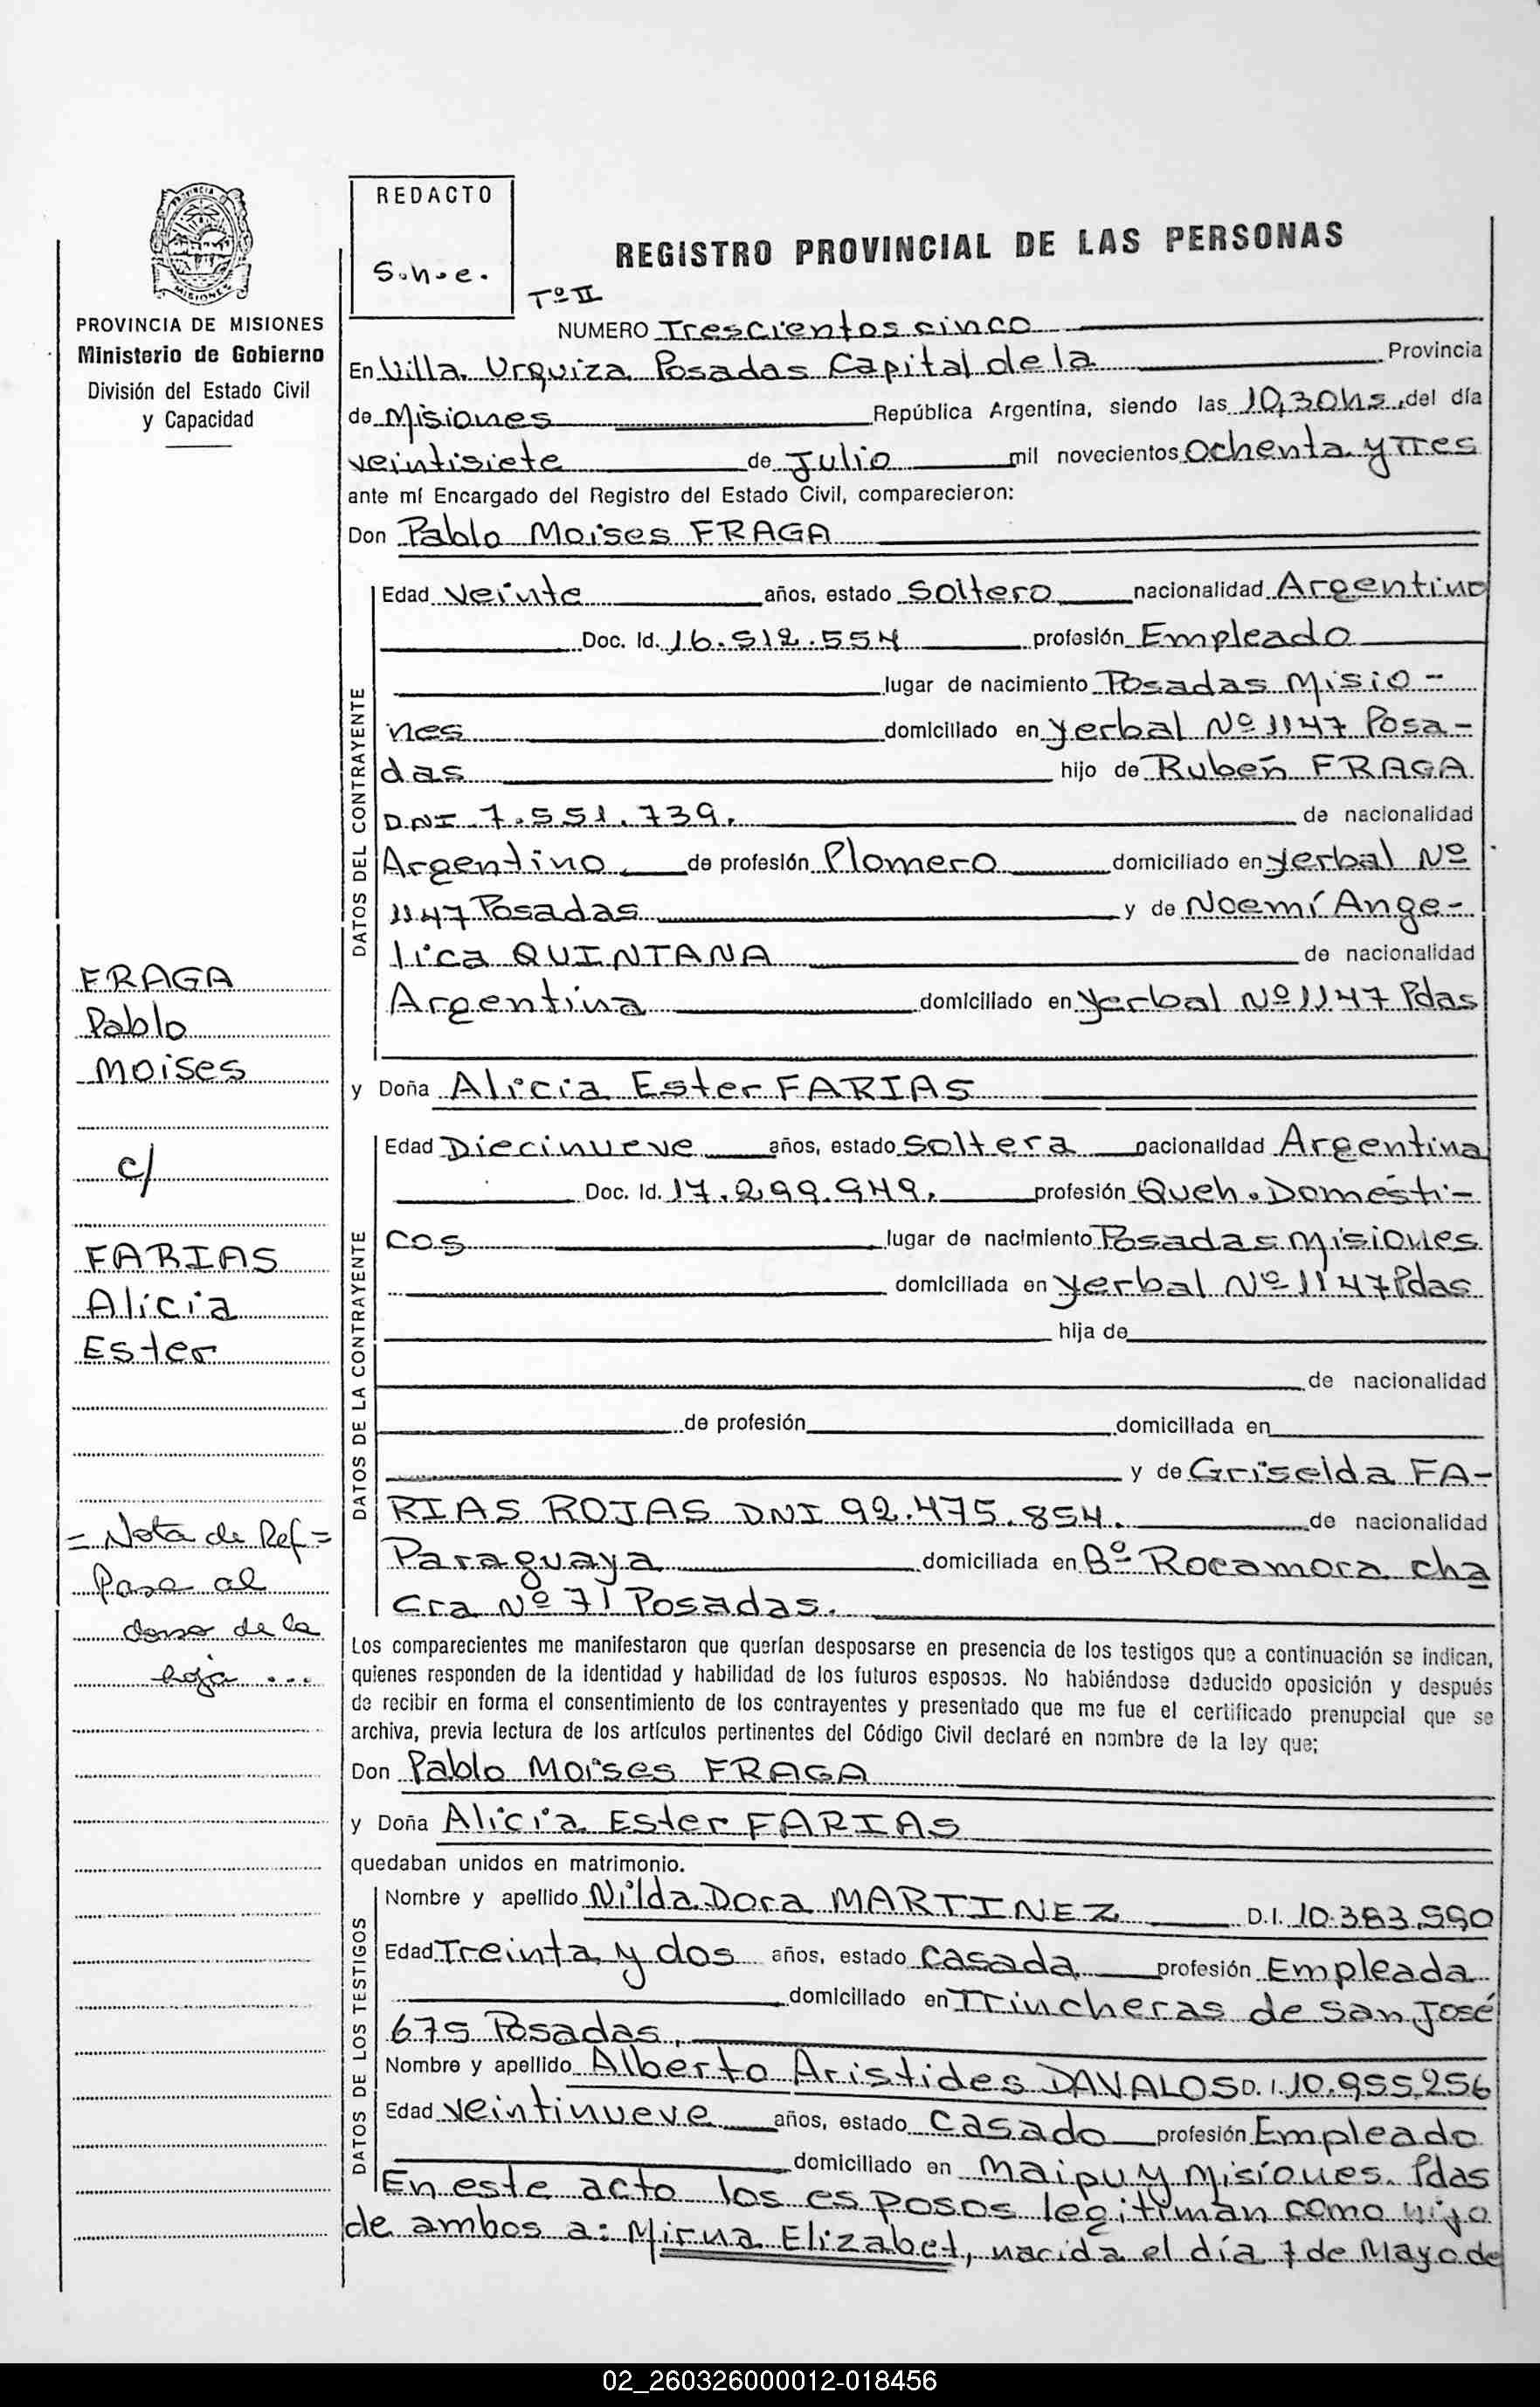 REDACTO
S.h.e.
PROVINCIA DE MISIONES
Ministerio de Gobierno
División del Estado Civil
y Capacidad
REGISTRO PROVINCIAL DE LAS PERSONAS
Tº II
NUMERO Trescientos cinco
En Villa Urquiza Posadas Capital de la Provincia
de Misiones República Argentina, siendo las 10,30hs del día
veintisiete de Julio mil novecientos Ochenta y Tres
ante mí Encargado del Registro del Estado Civil, comparecieron:
Don Pablo Moises FRAGA
DATOS DEL CONTRAYENTE
Edad veinte años, estado Soltero nacionalidad Argentino
Doc. Id. 16.512.554 profesión Empleado
lugar de nacimiento Posadas Misio-
nes domiciliado en yerbal Nº 1147 Posa-
das hijo de Ruben FRAGA
DNI 7.551.739. de nacionalidad
Argentino de profesión Plomero domiciliado en yerbal Nº
1147 Posadas y de Noemí Ange-
lica QUINTANA de nacionalidad
Argentina domiciliado en yerbal Nº 1147 Pdas
y Doña Alicia Ester FARIAS
DATOS DE LA CONTRAYENTE
Edad Diecinueve años, estado soltera nacionalidad Argentina
Doc. Id. 17.299.949. profesión Queh. Domésti-
cos lugar de nacimiento Posadas misiones
domiciliada en yerbal Nº 1147 Pdas
hija de
de nacionalidad
de profesión domiciliada en
y de Griselda FA-
RIAS ROJAS DNI 92.475.854. de nacionalidad
Paraguaya domiciliada en Bº Rocamora cha
cra Nº 71 Posadas.
FRAGA
Pablo
Moises
c/
FARIAS
Alicia
Ester
= Nota de Ref =
Pasa al
dorso de la
hoja ...
Los comparecientes me manifestaron que querían desposarse en presencia de los testigos que a continuación se indican,
quienes responden de la identidad y habilidad de los futuros esposos. No habiéndose deducido oposición y después
de recibir en forma el consentimiento de los contrayentes y presentado que me fue el certificado prenupcial que se
archiva, previa lectura de los artículos pertinentes del Código Civil declaré en nombre de la ley que:
Don Pablo Moises FRAGA
y Doña Alicia Ester FARIAS
quedaban unidos en matrimonio.
DATOS DE LOS TESTIGOS
Nombre y apellido Nilda Dora MARTINEZ D.I. 10.383.590
Edad Treinta y dos años, estado casada profesión Empleada
domiciliado en Trincheras de San José
675 Posadas,
Nombre y apellido Alberto Aristides DAVALOS D.I. 10.955.256
Edad veintinueve años, estado Casado profesión Empleado
domiciliado en Maipu y Misiones. Pdas
En este acto los esposos legitiman como hijo
de ambos a: Mirna Elizabet, nacida el día 7 de Mayo de
02_260326000012-018456